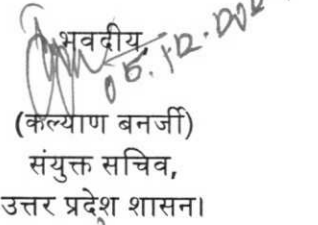 भवदीय,
(कल्याण बनर्जी)
संयुक्त सचिव,
उत्तर प्रदेश शासन।